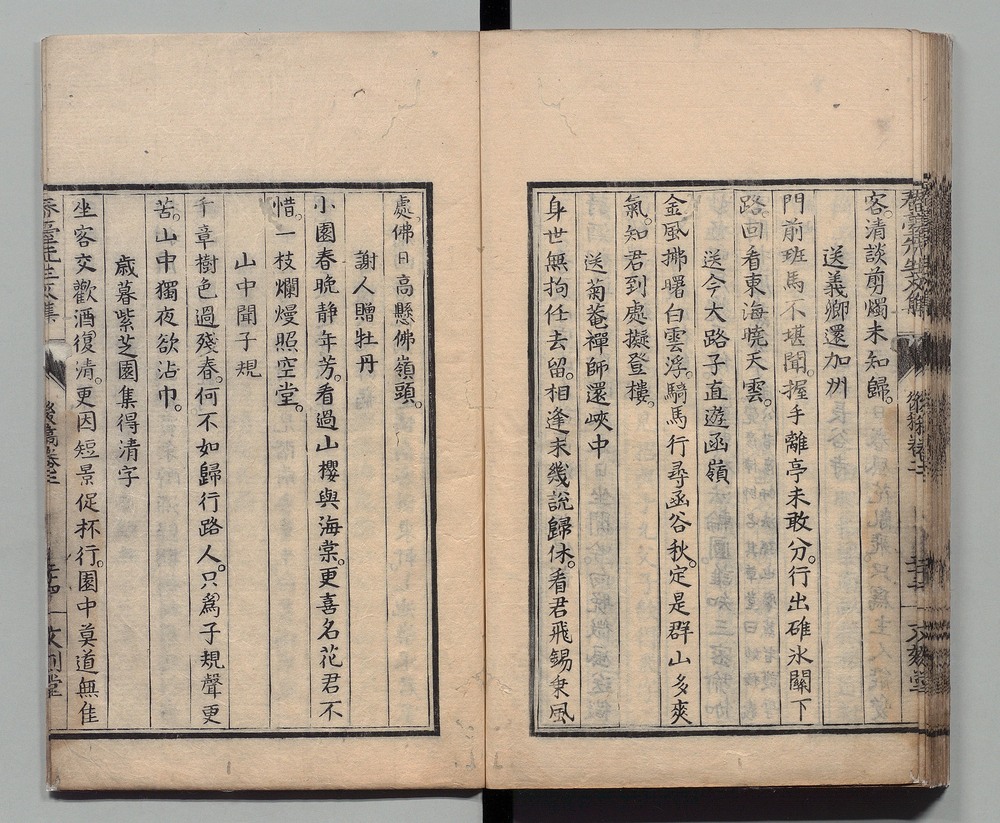 客。清談剪燭未知歸。
送義卿還加州
門前班馬不堪聞。握手離亭未敢分。行出碓氷關下
路。回看東海曉天雲。
送今大路子直遊函嶺
金風拂曙白雲浮。騎馬行尋函谷秋。定是群山多爽
氣。知君到處擬登樓。
送菊菴禪師還峽中
身世無拘任去留。相逢未幾說歸休。看君飛錫乗風
處。佛日高懸佛嶺頭。
謝人贈牡丹
小園春晚静年芳。看過山櫻與海棠。更喜名花君不
惜。一枝爛熳照空堂。
山中聞子規
千章樹色過殘春。何不如歸行路人。只爲子規聲更
苦。山中獨夜欲沾巾。
歲暮紫芝園集得清字
坐客交歡酒復清。更因短景促杯行。園中莫道無隹